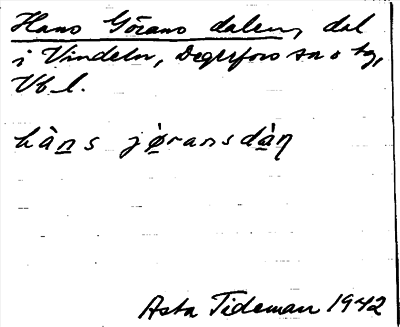 Hans Görans dalen, dal
i Vindeln, Degerfors sn o tg,
Vb l.
hàns jøransdàṇ
Asta Tideman 1942